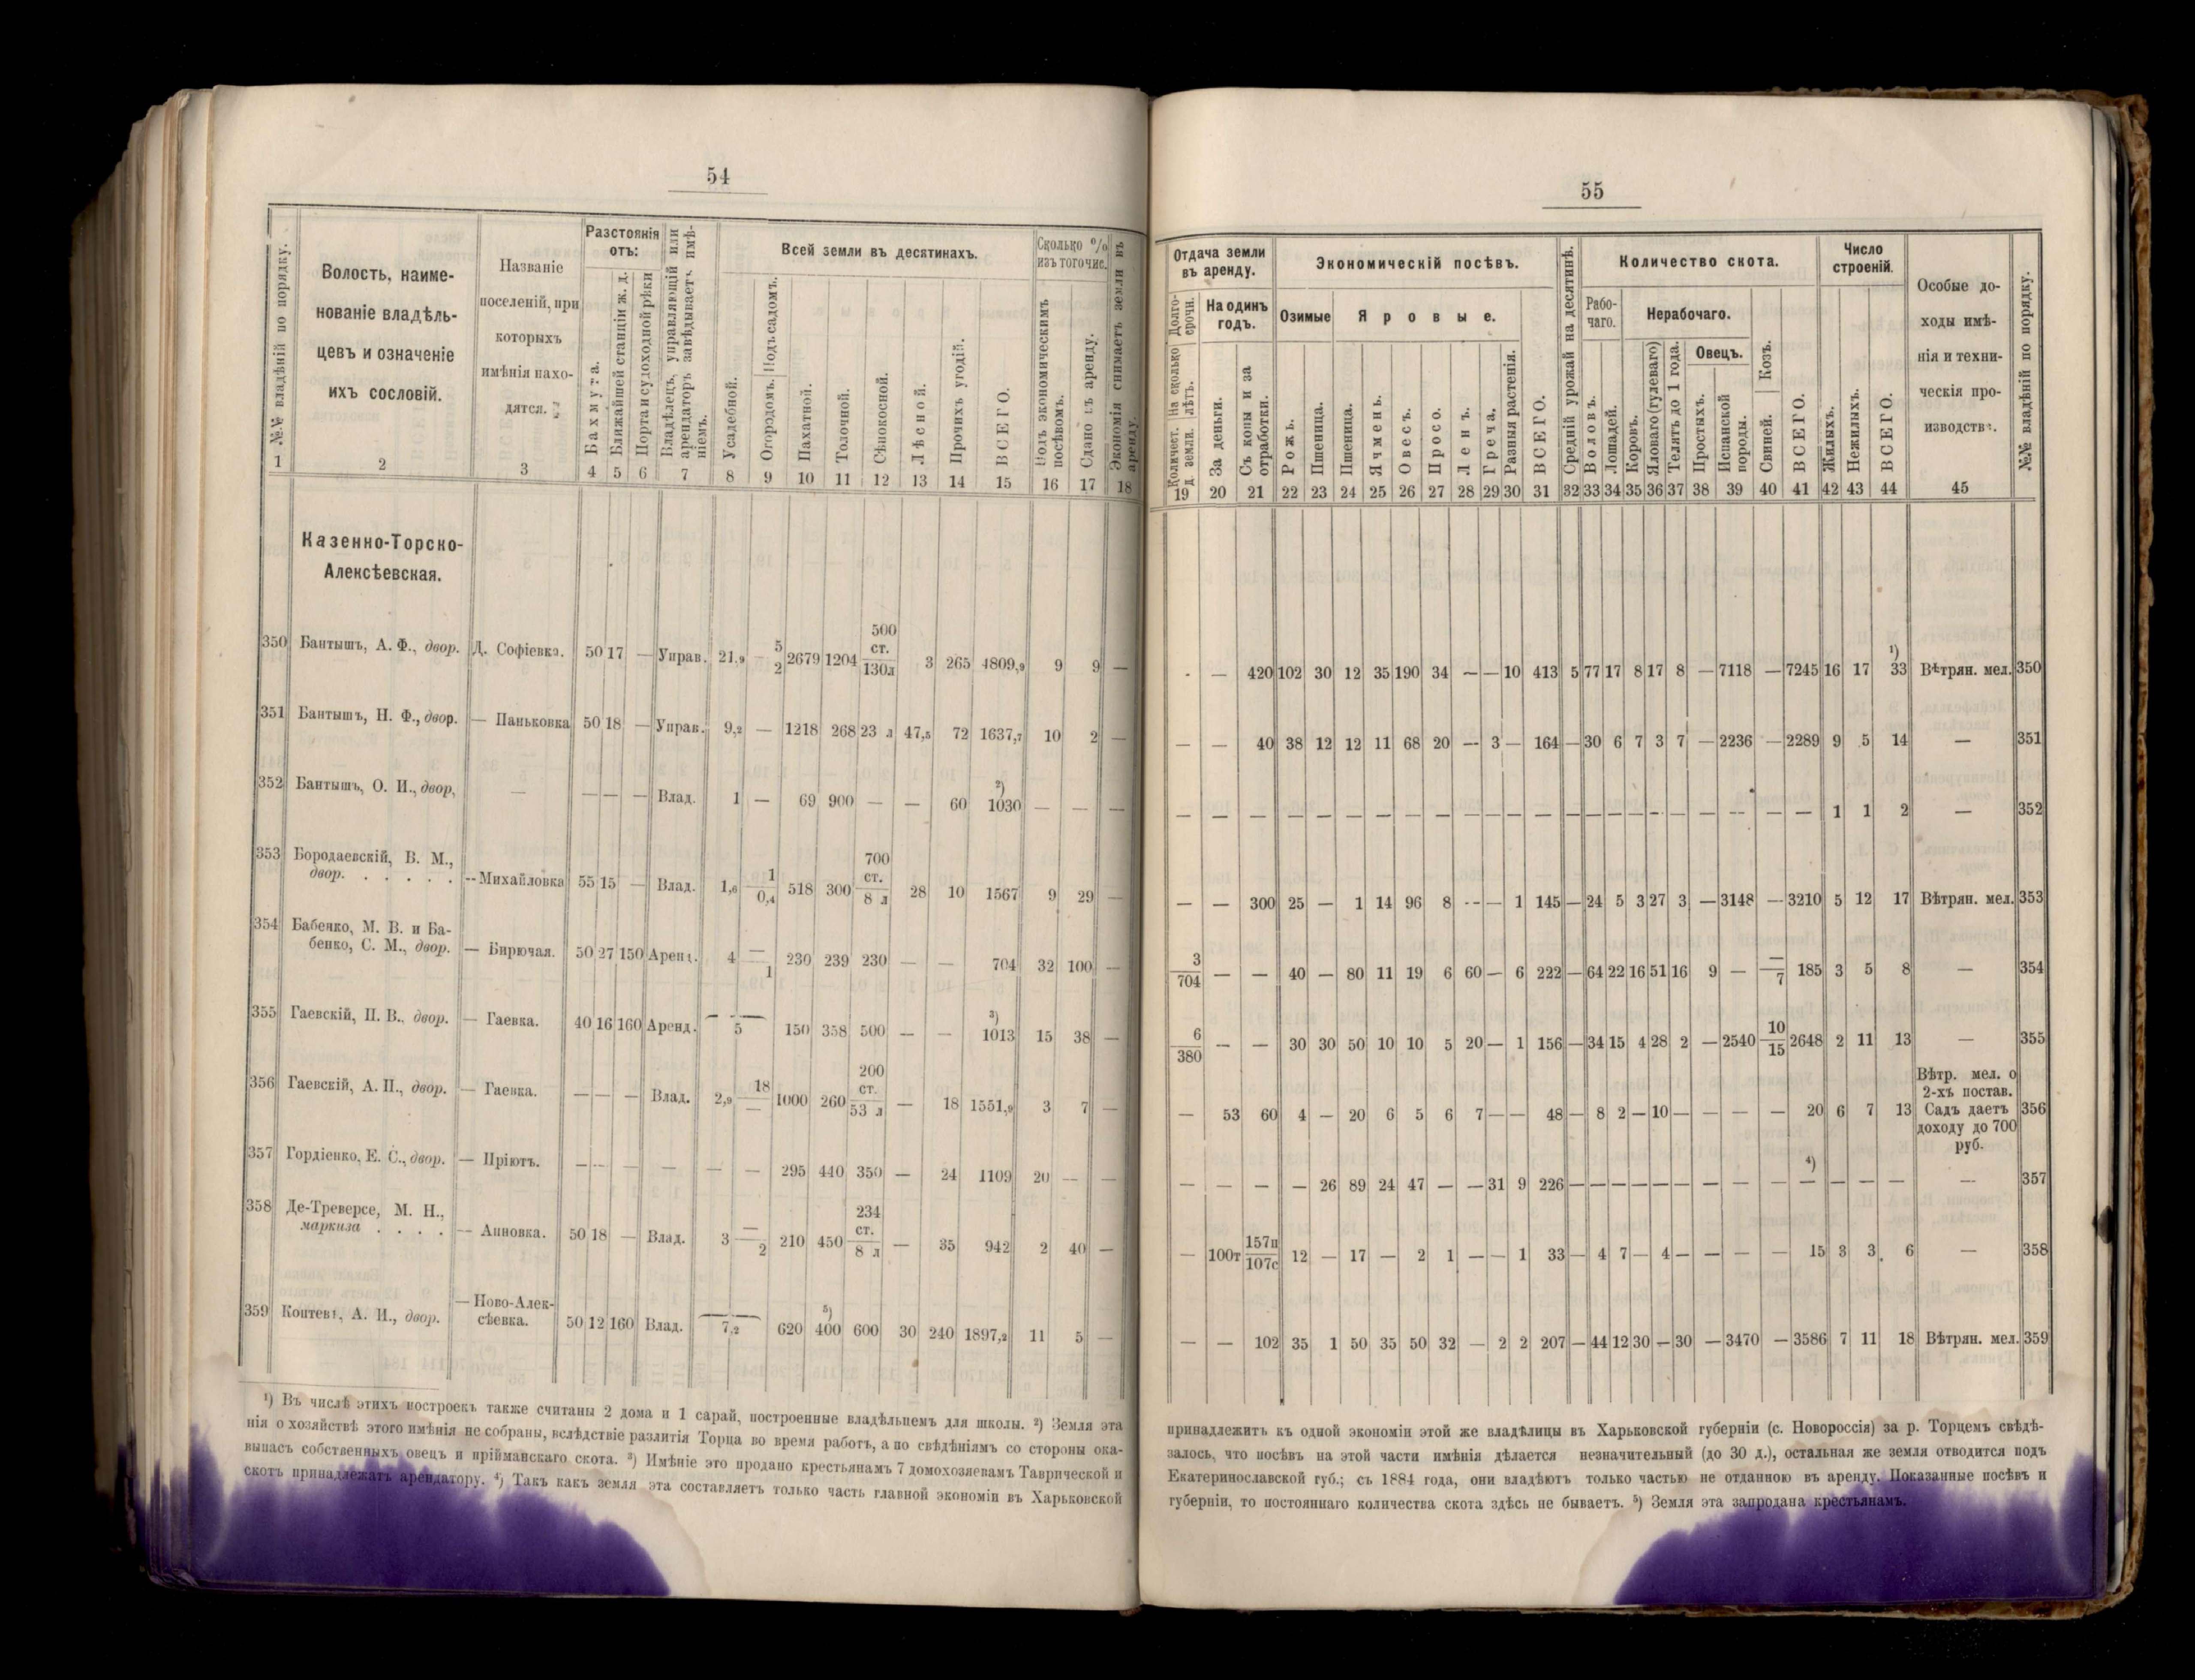 54
№№ владѣній по порядку.
Волость, наиме-
нованіе владѣль-
цевъ и означеніе
ихъ сословій.
Названіе
поселеній, при
которыхъ
имѣнія нахо-
дятся.
Разстоянія
отъ:
Бахмута.
Ближайшей станціи ж. д.
Порта и судоходной рѣки
Владѣлецъ, управляющій или
арендаторъ завѣдываетъ имѣ-
ніемъ.
Всей земли въ десятинахъ.
Усадебной.
Огородомъ. Подъ садомъ.
Пахатной.
Толочной.
Сѣнокосной.
Лѣсной.
Прочихъ угодій.
ВСЕГО.
Сколько %
изъ того чис.
Подъ экономическимъ
посѣвомъ.
Сдано въ аренду.
Экономія снимаетъ земли въ
аренду.
1 2 3 4 5 6 7 8 9 10 11 12 13 14 15 16 17 18
Казенно-Торско-
Алексѣевская.
350 Бантышъ, А. Ф., двор. Д. Софіевка. 50 17 — Управ. 21,9 5/2 2679 1204 500 ст./130л 3 265 4809,9 9 9 —
351 Бантышъ, Н. Ф., двор. — Паньковка 50 18 — Управ. 9,2 — 1218 268 23 л 47,5 72 1637,7 10 2 —
352 Бантышъ, О. И., двор, — — — — Влад. 1 — 69 900 — — 60 ²) 1030 — — —
353 Бородаевскій, В. М.,
двор. . . . . . — Михайловка 55 15 — Влад. 1,6 1/0,4 518 300 700 ст./8 л 28 10 1567 9 29 —
354 Бабенко, М. В. и Ба-
бенко, С. М., двор. — Бирючая. 50 27 150 Аренд. 4 —/1 230 239 230 — — 704 32 100 —
355 Гаевскій, П. В., двор. — Гаевка. 40 16 160 Аренд. 5 150 358 500 — — ³) 1013 15 38 —
356 Гаевскій, А. П., двор. — Гаевка. — — — Влад. 2,9 18/— 1000 260 200 ст./53 л — 18 1551,9 3 7 —
357 Гордіенко, Е. С., двор. — Пріютъ. — — — — — — 295 440 350 — 24 1109 20 — —
358 Де-Треверсе, М. Н.,
маркиза . . . . — Анновка. 50 18 — Влад. 3 —/2 210 450 234 ст./8 л — 35 942 2 40 —
359 Коптевъ, А. И., двор. — Ново-Алек-
сѣевка. 50 12 160 Влад. 7,2 620 ⁵) 400 600 30 240 1897,2 11 5 —
¹) Въ числѣ этихъ построекъ также считаны 2 дома и 1 сарай, построенные владѣльцемъ для школы. ²) Земля эта
нія о хозяйствѣ этого имѣнія не собраны, вслѣдствіе разлитія Торца во время работъ, а по свѣдѣніямъ со стороны ока-
выпасъ собственныхъ овецъ и пріймансkаго скота. ³) Имѣніе это продано крестьянамъ 7 домохозяевамъ Таврической и
скотъ принадлежатъ арендатору. ⁴) Такъ какъ земля эта составляетъ только часть главной экономіи въ Харьковской
55
Отдача земли
въ аренду.
Долго-
срочн.
Количест. На сколько
д. земли. лѣтъ.
На одинъ
годъ.
За деньги.
Съ копы и за
отработки.
Экономическій посѣвъ.
Озимые
Яровые.
Рожь.
Пшеница.
Пшеница.
Ячмень.
Овесъ.
Просо.
Ленъ.
Греча.
Разныя растенія.
ВСЕГО.
Средній урожай на десятинѣ.
Количество скота.
Рабо-
чаго.
Нерабочаго.
Воловъ.
Лошадей.
Коровъ.
Яловаго (гулеваго)
Телятъ до 1 года.
Овецъ.
Простыхъ.
Испанской
породы.
Свиней. Козъ.
ВСЕГО.
Число
строеній.
Жилыхъ.
Нежилыхъ.
ВСЕГО.
Особые до-
ходы имѣ-
нія и техни-
ческія про-
изводства.
№№ владѣній по порядку.
19 20 21 22 23 24 25 26 27 28 29 30 31 32 33 34 35 36 37 38 39 40 41 42 43 44 45
- — 420 102 30 12 35 190 34 — — 10 413 5 77 17 8 17 8 — 7118 — 7245 16 17 ¹) 33 Вѣтрян. мел. 350
— — 40 38 12 12 11 68 20 — 3 — 164 — 30 6 7 3 7 — 2236 — 2289 9 5 14 — 351
— — — — — — — — — — — — — — — — — — — — — — — 1 1 2 — 352
— — 300 25 — 1 14 96 8 — — 1 145 — 24 5 3 27 3 — 3148 — 3210 5 12 17 Вѣтрян. мел. 353
3/704 — — 40 — 80 11 19 6 60 — 6 222 — 64 22 16 51 16 9 — —/7 185 3 5 8 — 354
6/380 — — 30 30 50 10 10 5 20 — 1 156 — 34 15 4 28 2 — 2540 10/15 2648 2 11 13 — 355
— 53 60 4 — 20 6 5 6 7 — — 48 — 8 2 — 10 — — — — 20 6 7 13 Вѣтр. мел. о
2-хъ постав.
Садъ даетъ
доходу до 700
руб. 356
— — — — 26 89 24 47 — — 31 9 226 — — — — — — — — — ⁴) — — — — — 357
— 100т 157п/107с 12 — 17 — 2 1 — — 1 33 — 4 7 — 4 — — — — 15 3 3 6 — 358
— — 102 35 1 50 35 50 32 — 2 2 207 — 44 12 30 — 30 — 3470 — 3586 7 11 18 Вѣтрян. мел. 359
принадлежитъ къ одной экономіи этой же владѣлицы въ Харьковской губерніи (с. Новороссія) за р. Торцемъ свѣдѣ-
залось, что посѣвъ на этой части имѣнія дѣлается незначительный (до 30 д.), остальная же земля отводится подъ
Екатеринославской губ.; съ 1884 года, они владѣютъ только частью не отданною въ аренду. Показанные посѣвъ и
губерніи, то постояннаго количества скота здѣсь не бываетъ. ⁵) Земля эта запродана крестьянамъ.